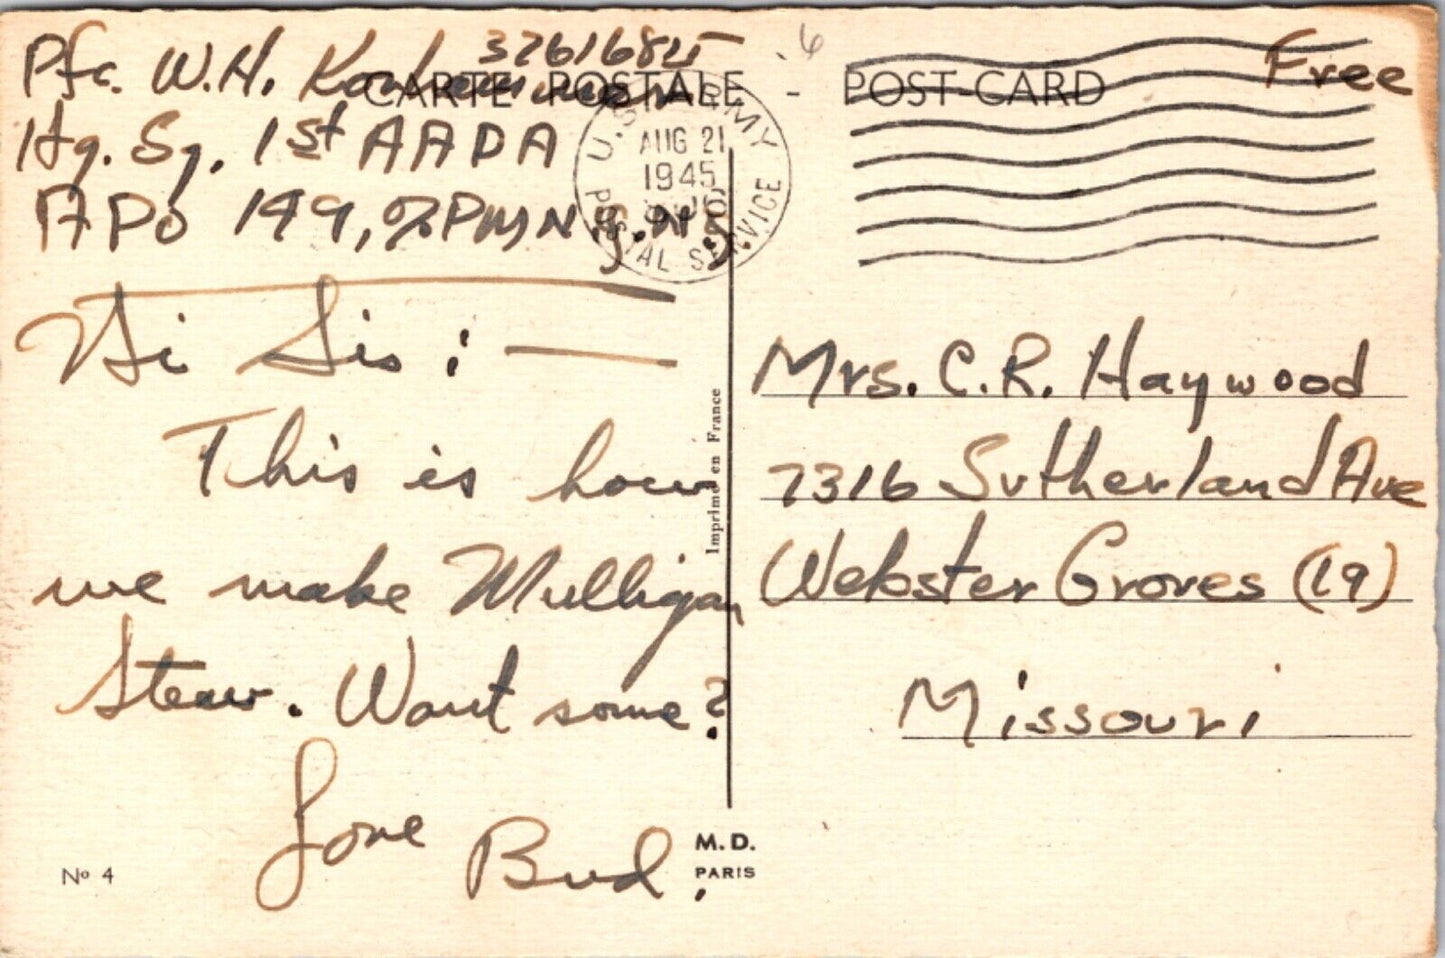 32616845
Pfc. W.H.
Hq. Sq. 1st AADA
APO 149, % PM N.Y. N.Y.
CARTE POSTALE - POST-CARD
6
Free
U.S. ARMY
AUG 21
1945
POSTAL SERVICE
Hi Sis: —
This is how
we make Mulligan
Stew. Want some?
Love Bud.
Imprimé en France
Mrs. C.R. Haywood
7316 Sutherland Ave
Webster Groves (19)
Missouri
Nº 4
M.D.
PARIS